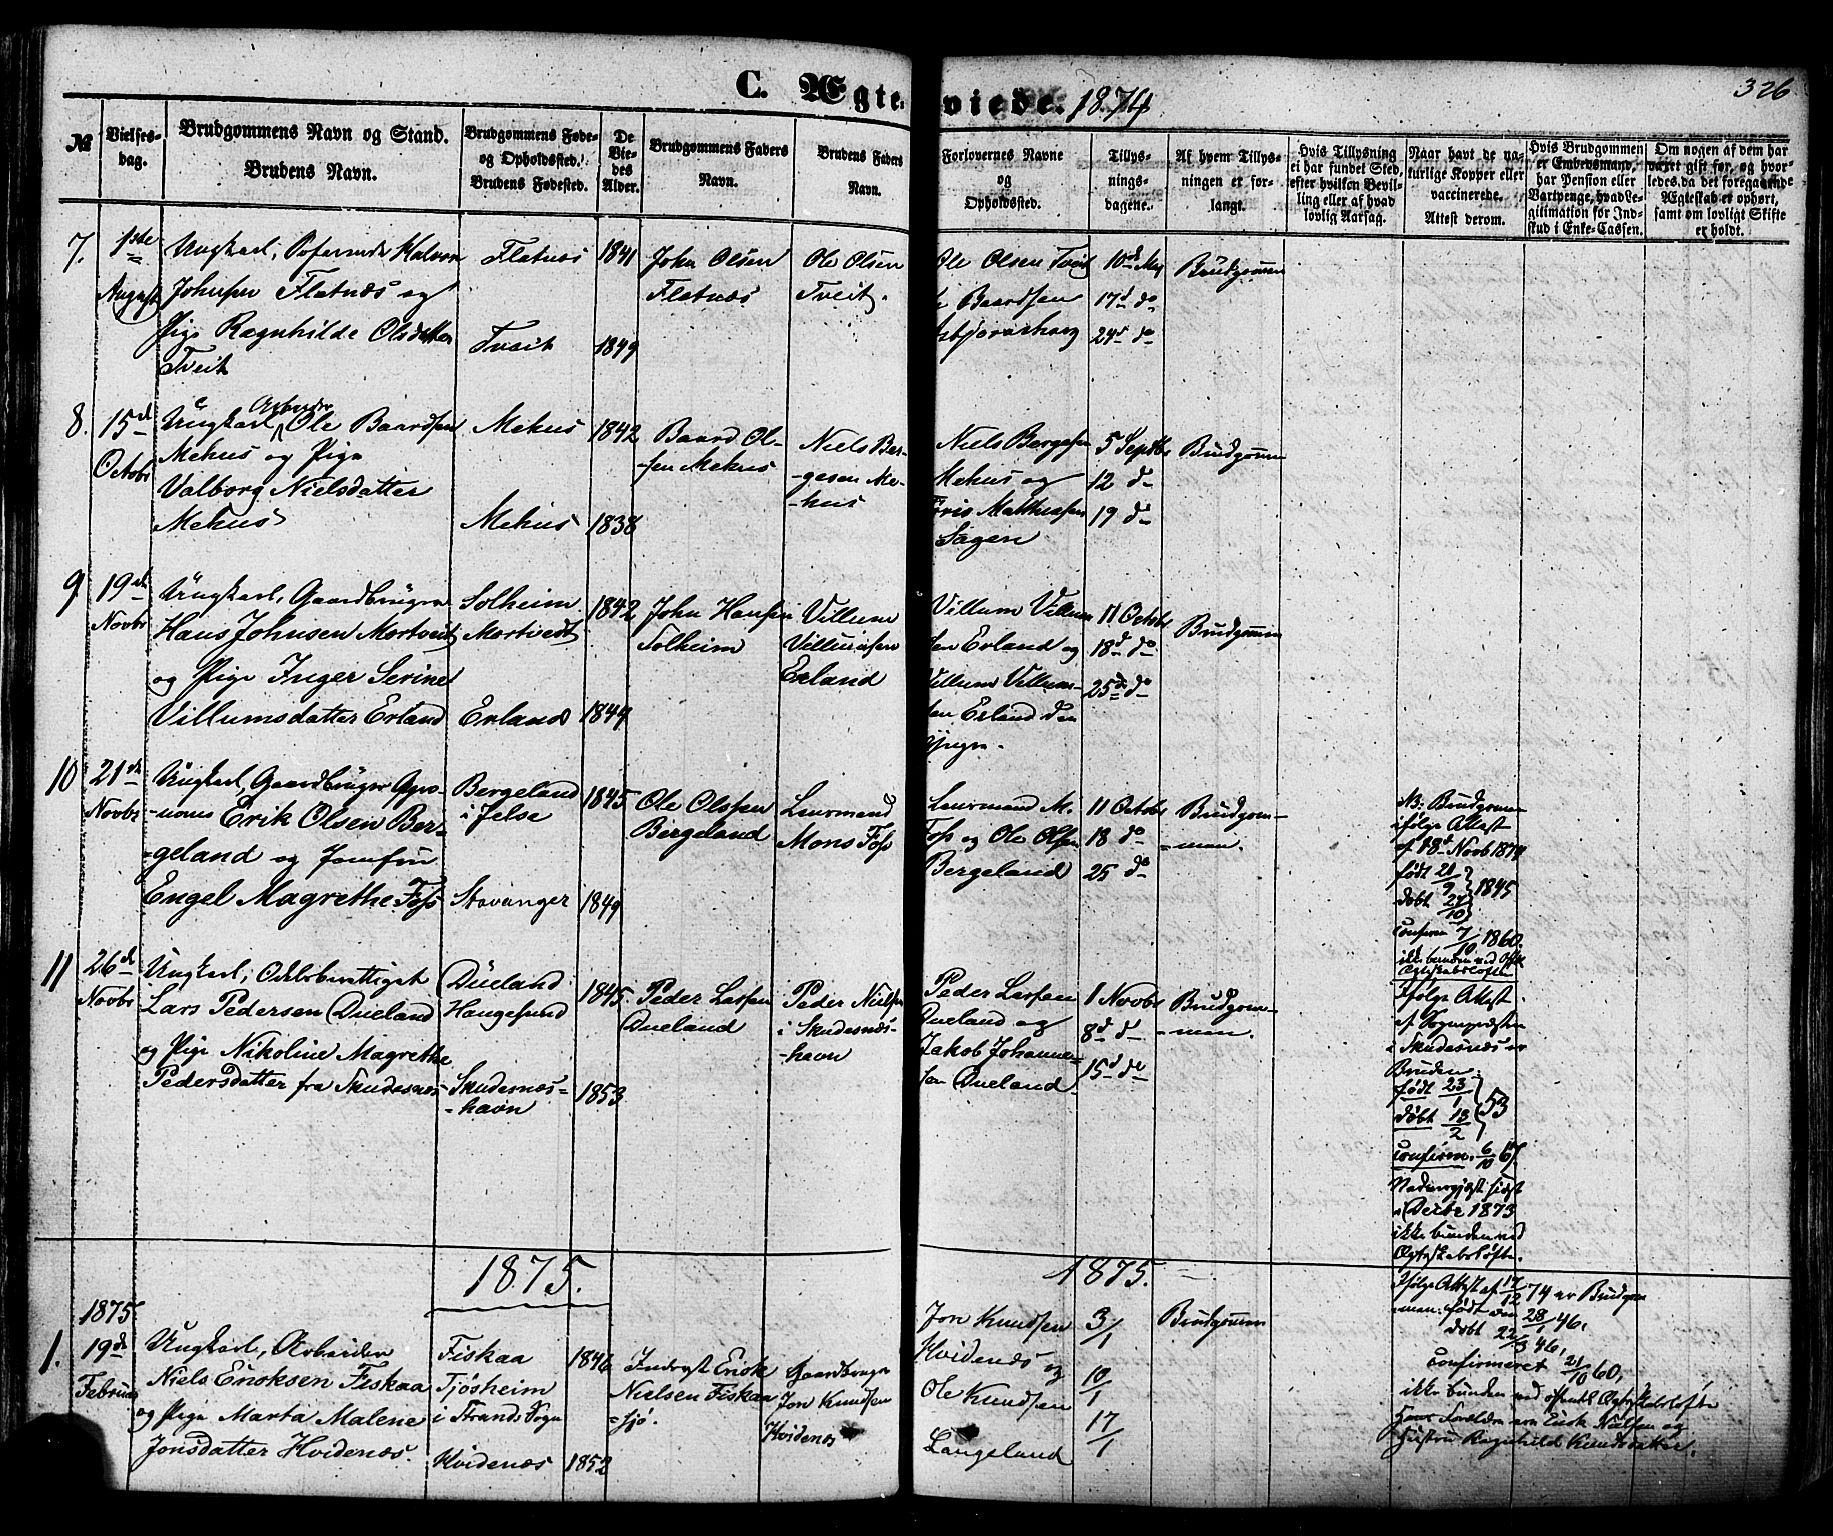 C. Ægteviede. 1874
326
№
Vielses-
dag.
Brudgommens Navn og Stand.
Brudens Navn.
Brudgommens Føde-
og Opholdssted.
Brudens Fødested.
De
Vie-
des
Alder.
Brudgommens Faders
Navn.
Brudens Faders
Navn.
Forlovernes Navne
og
Opholdssted.
Tillys-
nings-
dagene.
Af hvem Tillys-
ningen er for-
langt.
Hvis Tillysning
ei har fundet Sted,
efter hvilken Bevil-
ling eller af hvad
lovlig Aarsag.
Naar havt de na-
turlige Kopper eller
vaccinerede.
Attest derom.
Hvis Brudgommen
er Embedsmand,
har Pension eller
Vartpenge, hvad Le-
gitimation for Ind-
skud i Enke-Cassen.
Om nogen af dem har
været gift før, og hvor-
ledes da det foregaaende
Ægteskab er ophørt,
samt om lovligt Skifte
er holdt.
7.
1ste
August
Ungkarl, Halvor
Johnsen Flatnæs og
Pige Ragnhilde Olsdatter
Tveit
Flatnæs
Tveit
1841
1849
John Olsen
Flatnæs
Ole Olsen
Tveit.
Ole Olsen Tveit
Baardsen
10de Maj
17d do
24d do
Brudgommen
8.
15d
Octobr
Ungkarl Arbeider Ole Baardsen
Mehus og Pige
Valborg Nielsdatter
Mehus
Mehus
Mehus
1842
1838
Baard Ol-
-sen Mehus
Niels Ber-
gesen Me-
-hus
Niels Bergesen
Mehus og
Matthiasen
Sagen
5 Septbr
12 do
19 do
Brudgommen
9
19de
Novbr
Ungkarl, Gaardbruger
Hans Johnsen Mortvedt
og Pige Inger Serine
Villumsdatter Erland
Solheim
Mortvedt
Erland
1842
1849
John Hansen
Solheim
Villum
Villumsen
Erland
Villum Villum-
sen Erland og
Villum Villum-
sen Erland den
yngre.
11 Octobr
18d do
25d do
Brudgommen
10
21de
Novbr
Ungkarl, Gaardbruger Agro-
-nom Erik Olsen Ber-
-geland og Jomfru
Engel Magrethe Foss
Bergeland
i Jelse
Stavanger
1845
1849
Ole Olssen
Bergeland
Lensmand
Mons Foss
Lensmand M.
Foss og Ole Olsen
Bergeland
11 Octobr
18 do
25 do
Brudgom-
-men.
NB: Brudgommen
ifølge Attest
af 18d Novb 1874
født 21/9
døbt 24/10 1845
Confirm 7/10 1860.
ikke bunden ved Offtl
Ægteskabsløfte
11
26de
Novbr
Ungkarl, Odelsberettiget
Lars Pedersen Dueland
og Pige Nikoline Magrethe
Pedersdatter fra Skudesnæs-
Dueland
Haugesund
Skudesnæs-
-havn
1845.
1853
Peder Larsen
Dueland
Peder Nielsen
i Skudesnæs-
-havn
Peder Larsen
Dueland og
Jakob Johanne-
sen Dueland.
1 Novbr
8d do
15d do
Brudgom-
-men.
Ifølge Attest
af Sognepræsten
i Skudesnæs er
Bruden
født 23/1
døbt 13/2 53
Confirm. 6/10 67.
Nadvergjæst sidst
i Decbr 1873
ikke bunden ved
Ægteskabsløfte.
1875.
1875.
1875
1.
19de
Februar
Ungkarl, Arbeider
Niels Enoksen Fiskaa
og Pige Marta Malene
Jonsdatter Hvidenæs.
Fiskaa
Tjøsheim
i Strands Sogn
Hvidenæs
1846
1852
Inderst Enok
Nielsen Fiskaa
-sjø.
Gaardbruger
Jon Knudsen
Hvidenæs
Jon Knudsen
Hvidenæs og
Ole Knudsen
Langeland
3/1
10/1
17/1
Brudgommen
Ifølge Attest af 17/12 74 er Brudgom
-men: født den 28/1 46,
døbt 22/3 46,
Confirmeret 21/10 60,
ikke bunden ved offentl Ægteskabsløfte
Hans Forældre ere Enok Nielsen og
Hustru Ragnhild Knudsdatter.